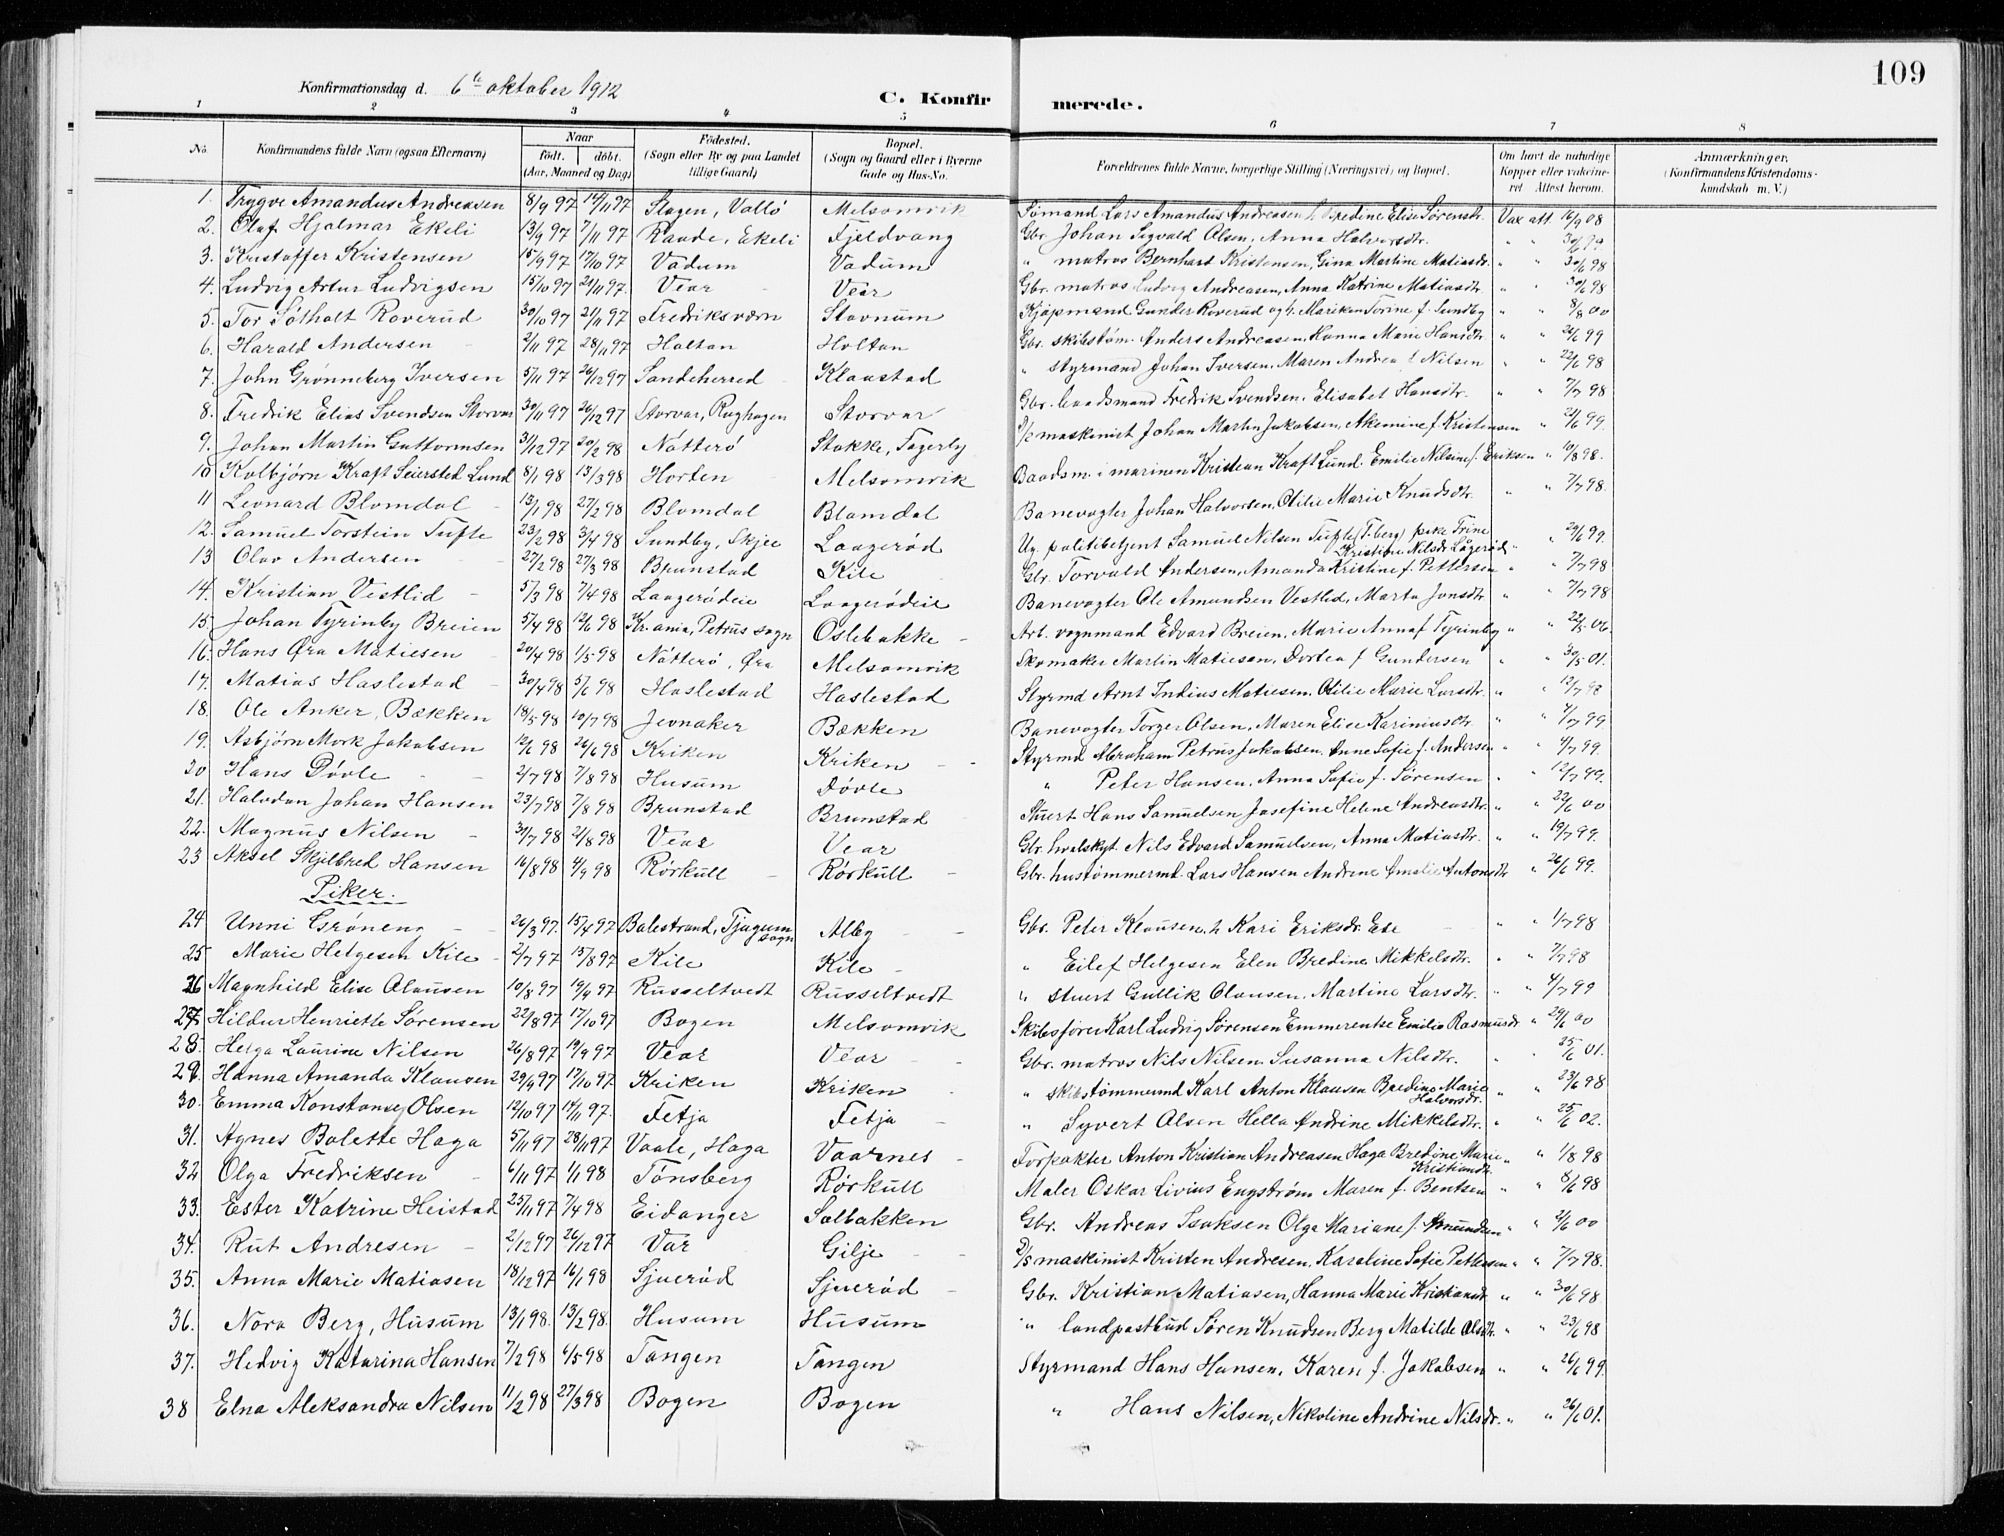 109
Konfirmationsdag d. 6te oktober 1912
C. Konfirmerede.
1 2 3 4 5 6 7 8
No. Konfirmandens fulde Navn (ogsaa Efternavn) Naar født. døbt. (Aar, Maaned og Dag) Fødested. (Sogn eller By og paa Landet tillige Gaard) Bopæl. (Sogn og Gaard eller i Byerne Gade og Hus-No. Forældrenes fulde Navne, borgerlige Stilling (Næringsvei) og Bopæl. Om havt de naturlige Kopper eller vakcineret. Attest herom. Anmærkninger. (Konfirmandens Kristendomskundskab m. V.)
1. Trygve Amandus Andreasen 8/9 97 14/11 97 Slagen, Vallø Melsomvik Sømand Lars Amandus Andreasen h. Bredine Elise Sørensdtr. Vax att. 16/9 08
2. Olaf Hjalmar Ekeli 13/9 97 7/11 97 Raade, Ekeli Fjeldvang Gbr. Johan Sigvald Olsen, Anna Halvorsdtr. " " 30/6 99
3. Kristoffer Kristensen 15/9 97 17/10 97 Vadum Vadum " matros Bernhard Kristensen, Gina Martine Matiasdtr. " " 30/6 98
4. Ludvig Artur Ludvigsen 15/10 97 21/11 97. Vear Vear Gbr. matros Ludvig Andreasen, Anna Katrine Matiasdtr " " 30/6 98
5. Tor Sølholt Roverud 30/10 97 21/11 97 Fredriksværn Stavnum Kjøpmand Gunder Roverud og h. Mariken Torine f. Sundby " " 8/8 00
6. Harald Andersen 2/11 97 28/11 97 Holtan Holtan Gbr. skibstøm. Anders Andreasen, Hanna Marie Hansdtr " " 26/6 99
7. John Grønneberg Iversen 5/11 97 26/12 97 Sandeherred Klaastad " styrmand Johan Iversen, Maren Andrea f. Nilsen " " 22/6 98
8. Fredrik Elias Svendsen Storvar 30/11 97 26/12 97 Storvar, Rughagen Storvar Gbr. baadsmand Fredrik Svendsen, Elisabet Hansdtr. " " 7/7 98
9. Johan Martin Guttormsen 31/12 97 20/2 98 Nøtterø Stokke, Fagerby maskinist Johan Martin Jakobsen, Akemine f. Kristensen " 21/6 99.
10 Kolbjørn Kraft Seiersted Lund 8/1 98 13/3 98 Horten Melsomvik Baadsm. i marinen Kristian Kraft Lund. Emilie Nilsine f. Eriksen " 10/8 98.
11 Leonard Blomdal 13/1 98 27/2 98 Blomdal Blomdal Banevogter Johan Halvorsen, Otilie Marie Knudsdtr. " " 7/7 98.
12. Samuel Torstein Tufte 23/2 98 3/4 98 Sundby, Skjee Laagerød Ug. politibetjent Samuel Nilsen Tufte (T-berg) pike Trine Kristine Nilsdr Lågerød " " 29/6 99.
13 Olav Andersen 27/2 98 27/3 98 Brunstad Kile Gbr. Torvald Andersen, Amanda Kristine f. Pettersen " " 7/7 98
14. Kristian Vestlid 5/3 98 7/4 98 Laagerødeie Laagerødeie Banevogter Ole Amundsen Vestlid, Marta Jonsdtr " " 7/7 98
15. Johan Tyrinby Breien 5/4 98 12/6 98 Kr.ania, Petrus sogn Oslebakke Arb. vognmand Edvard Breien, Marie Anna f Tyrinby " " 22/5 06.
16. Hans Øra Matiesen 20/4 98 1/5 98 Nøtterø, Øra Melsomvik Skomaker Martin Matiesen, Dortea f Gundersen " " 30/5 01.
17. Matias Haslestad 30/4 98 5/6 98 Haslestad Haslestad Styrmd Arnt Indius Matiesen, Otilie Marie Larsdtr. " " 12/7 98
18. Ole Anker, Bækken 18/5 98 10/7 98 Jevnaker Bækken Banevogter Torger Olsen, Maren Elise Kariniusdtr " " 7/7 99.
19. Asbjørn Mørk Jakobsen 12/6 98 26/6 98 Kriken Kriken Styrmd Abraham Petrus Jakobsen, Anne Sofie f. Andersen " " 4/7 99
20 Hans Døvle 2/7 98 7/8 98 Husum Døvle " Peter Hansen, Anna Sofie f. Sørensen " " 12/7 99.
21. Halvdan Johan Hansen 23/7 98 7/8 98 Brunstad Brunstad Stuert Hans Samuelsen Josefine Helene Andreasdtr. " " 22/6 00
22. Magnus Nilsen 30/7 98 21/8 98 Vear Vear Gbr. hvalskyt. Nils Edvard Samuelsen, Anna Matiasdtr. " " 19/7 99.
23 Aksel Skjelbred Hansen 16/8 98 4/9 98 Rørkull Rørkull Gbr. hustømmermd. Lars Hansen Andrine Amalie Antonsdtr " 26/6 99.
Piker.
24 Unni Grøneng 26/3 97. 15/4 97 Balestrand, Tjugum sogn Alby Gbr. Peter Klausen, h Kari Eriksdr. Ese " " 1/7 98
25 Marie Helgesen Kile 2/7 97 15/8 97 Kile Kile " Eilef Helgesen Elen Bredine Mikkelsdtr. " " 7/7 98
26 Magnhild Elise Olausen 10/8 97 19/9 97 Russeltvedt Russeltvedt " stuert Gullik Olausen, Martine Larsdtr. " " 4/7 99
27 Hildur Henriette Sørensen 22/8 97 17/10 97 Bogen Melsomvik Skibsfører Karl Ludvig Sørensen Emmerentse Emilie Rasmusdr " 29/6 00
28. Helga Laurine Nilsen 26/8 97 19/9 97 Vear Vear Gbr. matros Nils Nilsen Susanna Nilsdtr. " " 25/6 01.
29. Hanna Amanda Klausen 29/9 97 17/10 97 Kriken Kriken " skibstømmermd Karl Anton Klausen Bredine Marie Halvorsdr. " " 23/6 98
30. Emma Konstanse Olsen 12/10 97 14/11 97. Fetja Fetja " Syvert Olsen Hella Andrine Mikkelsdtr. " " 25/6 02.
31. Agnes Bolette Haga 5/11 97 28/11 97 Vaale, Haga Vaarnes Forpakter Anton Kristian Andreasen Haga Bredine Marie Kristiandtr. " " 1/8 98
32 Olga Fredriksen 6/11 97 1/1 98 Tønsberg Rørkull Maler Oskar Livius Engstrøm Maren f. Bentsen " " 8/6 98
33. Ester Katrine Heistad 25/11 97 7/4 98 Eidanger Solbakken Gbr. Andreas Isaksen Olga Mariane f. Amundsen " " 21/6 00
34. Rut Andresen 2/12 97 26/12 97 Vår Gilje maskinist Kristen Andresen, Karoline Sofie Pettersen " " 7/7 98.
35. Anna Marie Matiasen 18/12 97 16/1 98 Sjuerød Sjuerød Gbr. Kristian Matiasen, Hanna Marie Kristiansdr " " 30/6 98
36. Nora Berg, Husum 13/1 98. 13/2 98. Husum Husum " landpostbud Søren Knudsen Berg Matilde Olsdtr. " " 23/6 98
37. Hedvig Katarina Hansen 7/2 98 6/5 98 Tangen Tangen Styrmand Hans Hansen, Karen f. Jakobsen " " 26/6 99.
38 Elna Aleksandra Nilsen 11/2 98 27/3 98 Bogen Bogen " Hans Nilsen, Nikoline Andrine Nilsdr. " " 26/6 01.